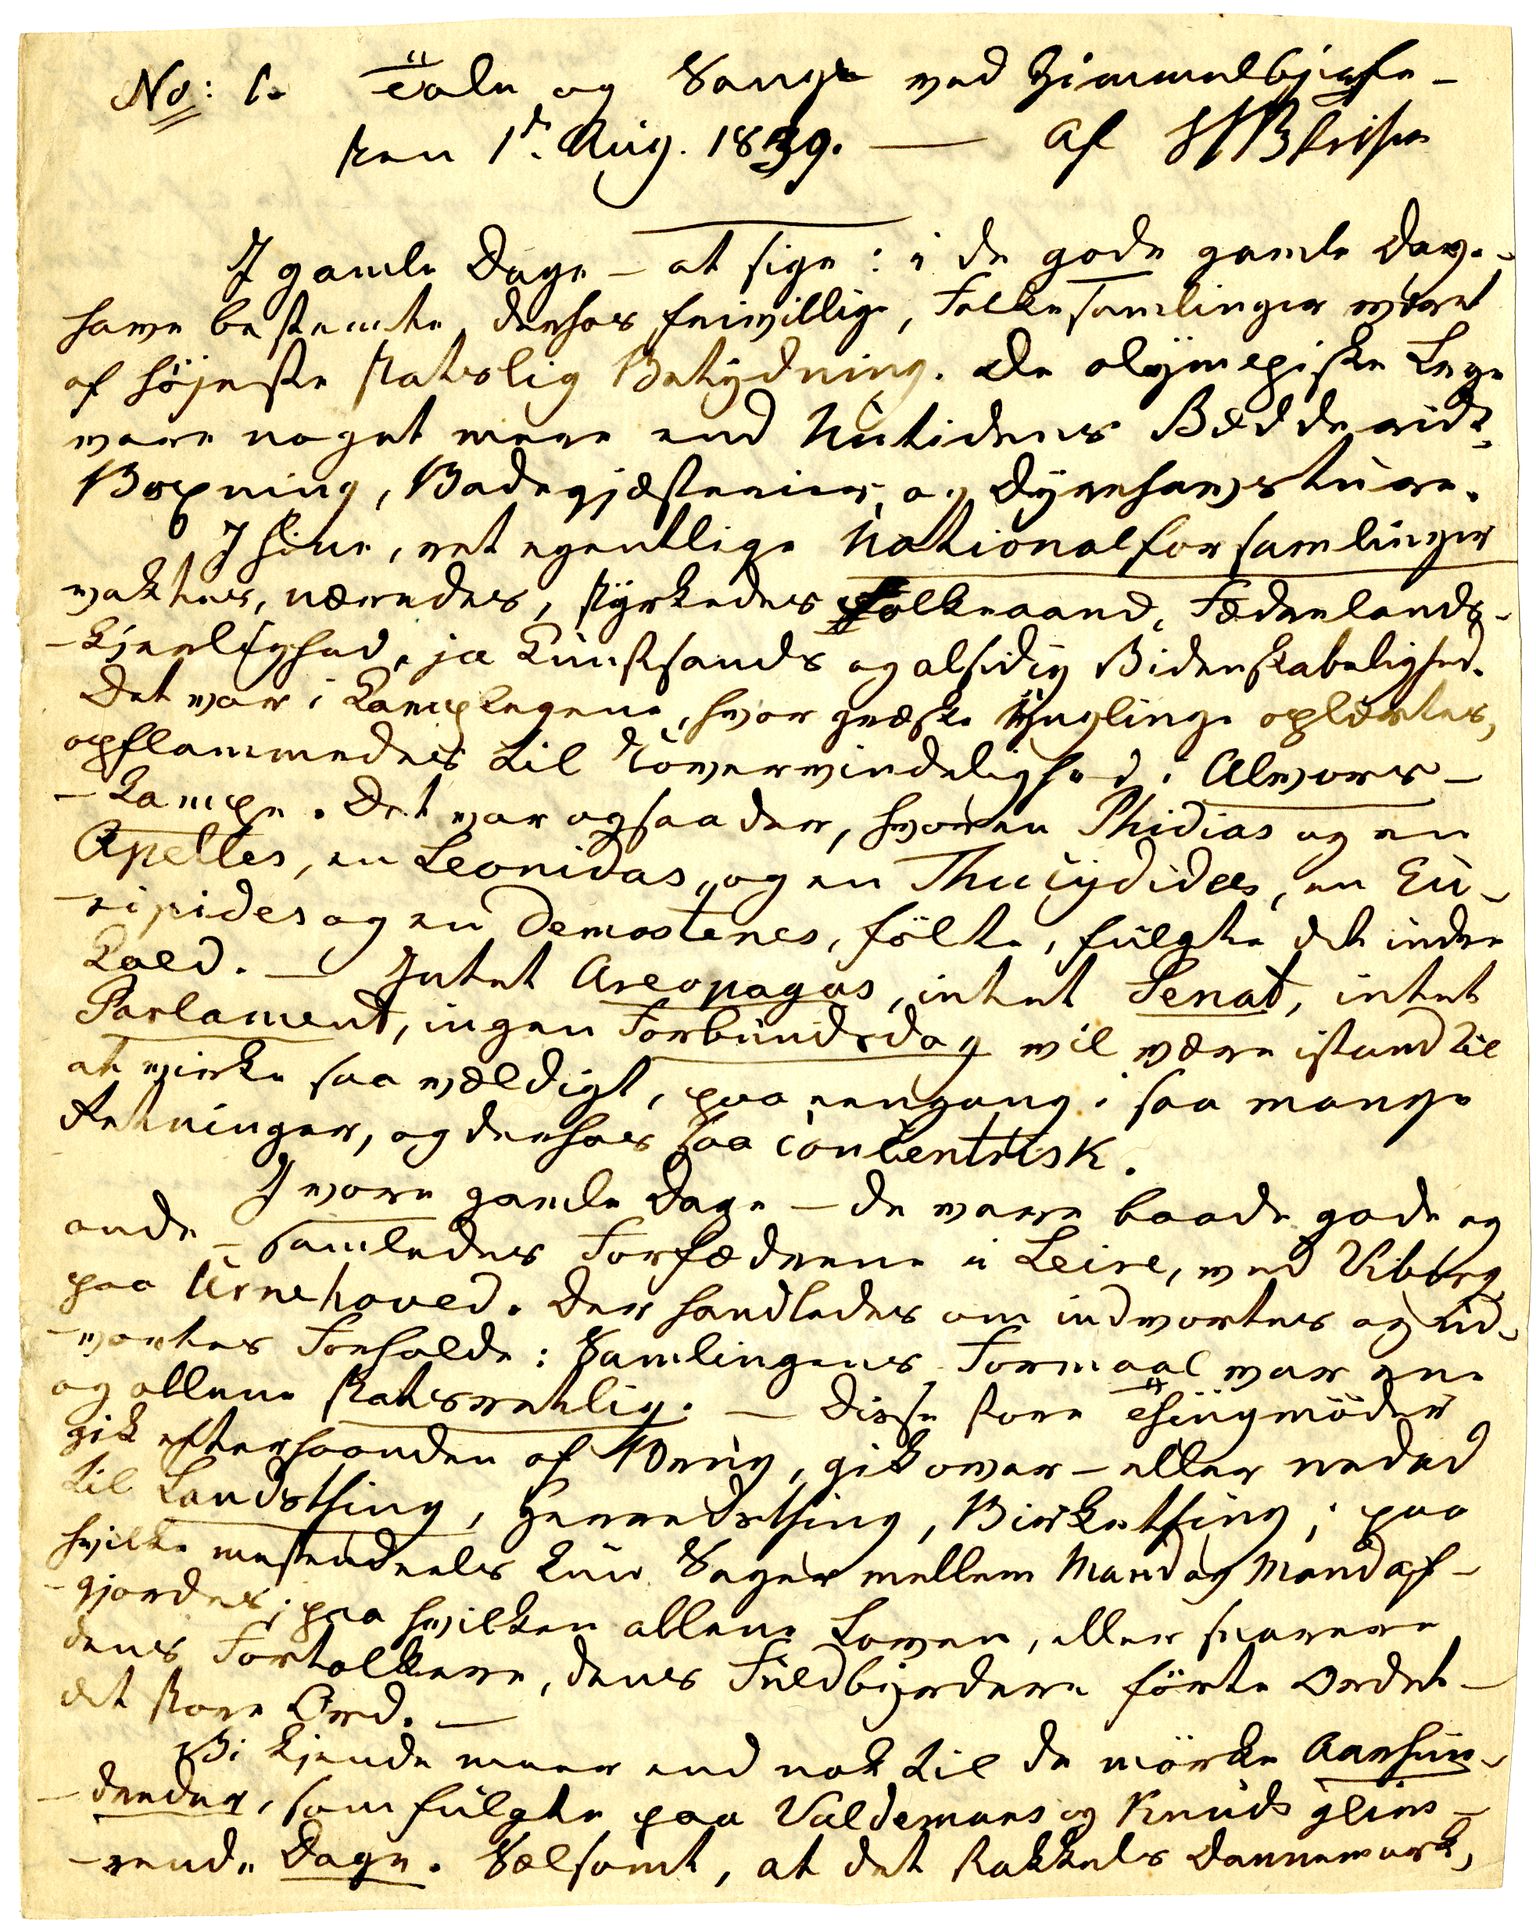 No: 1. Tale og Sange ved Himmelbjerfe-
den 1ste Aug. 1839. — af St B
I gamle Dage – at sige: i de gode gamle Dage-
have bestemte, derhos frivillige, Folkesamlinger været
af højeste statslig Betydning. De olympiske Lege
vare noget mere end Nutidens Vædderidt,
Boxning, Badegjæsterier, og Dyrehavsture.
I hine, ret egentlige Nationalforsamlinger
vaktes, næredes, styrkedes Folkeaand, Fædrelands-
-kjerlighed, ja Kunstsands og alsidig Videnskabelighed.
Det var i Kamplegene, hvor græske Ynglinge oplærtes,
opflammedes til Uovervindelighed i Alvors-
-Kampe. Det var ogsaa der, hvor en Phidias og en
Apelles, en Leonidas, og en Thucydides, en Eu-
-ripides og en Demostenes, fölte, fulgte det indre
Kald. — Intet Areopagus, intet Senat, intet
Parlament, ingen Forbundsdag vil være istand til
at virke saa vældigt, paa eengang i saa mange
Retninger, og derhos saa concentrisk.
I vore gamle Dage – de vare baade gode og
onde – samledes Forfædrene i Leire, ved Viborg,
paa Urnehoved. Der handledes om indvortes og ud-
-vortes Forholde: Samlingens Formaal var ene
og allene statsretlig. — Disse store Thingmöder
gik efterhaanden af Brug, gik over – eller neded
til Landsthing, Herredsthing, Birkething; paa
hvilke mestendeels kun Sager mellem Mand og Mand af-
-gjordes; paa hvilken allene Loven, eller snarere
dens Fortolkere, dens Fuldbyrdere förte Ordet –
det store Ord. —
Vi kjende meer end nok til de mörke Aarhun-
-dreder, som fulgte paa Valdemars og Knuds glim-
-rende Dage. Sælsomt, at det stakkels Dannemark,